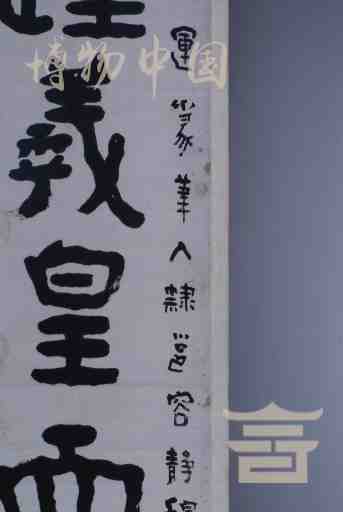 博物中国
運篆筆入隸邕容靜穆
羲皇